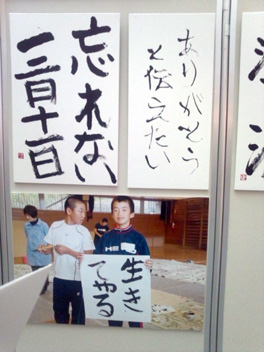 忘れない
三月十一日
ありがとう
と伝えたい
生き
てやる